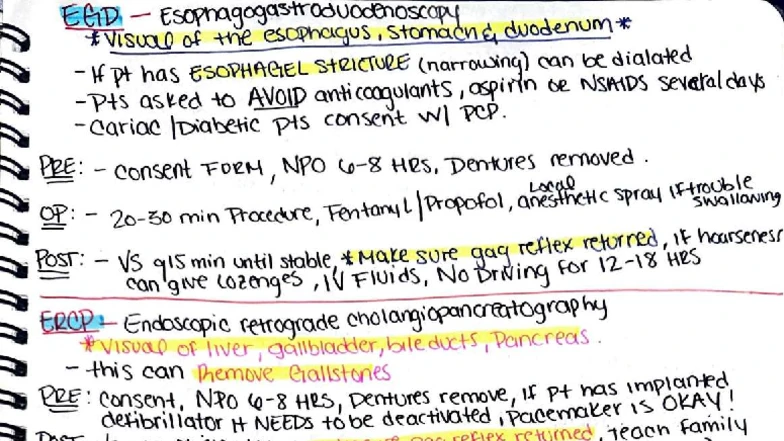 EGD - Esophagogastroduodenoscopy
*Visual of the esophagus, stomach & duodenum*
- If pt has ESOPHAGEL STRICTURE (narrowing) can be dialated
- Pts asked to AVOID anticoagulants, aspirin or NSAIDS several days
- Cariac/Diabetic pts consent w/ PCP.
PRE: - consent FORM, NPO 6-8 HRS, Dentures removed.
OP: - 20-30 min Procedure, Fentanyl/Propofol, Local anesthetic spray if trouble swallowing
POST: - VS q15 min until stable, *Make sure gag reflex returned, if hoarseness
can give lozenges, IV Fluids, No Driving for 12-18 HRS
ERCP - Endoscopic retrograde cholangiopancreatography
*Visual of liver, gallbladder, bile ducts, Pancreas.
- this can Remove Gallstones
PRE: consent, NPO 6-8 HRS, Dentures remove, If pt has implanted
defibrillator it NEEDS to be deactivated, Pacemaker is OKAY!
gag reflex returned, teach family